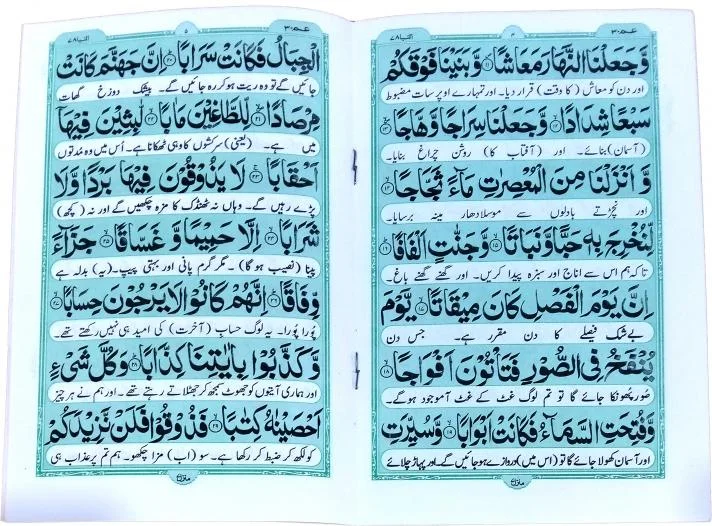 عـم ٣٠
٤
النبا ٧٨
وَّجَعَلْنَا النَّهَارَ مَعَاشًا ﴿١١﴾ وَّبَنَيْنَا فَوْقَكُمْ
اور دن کو معاش (کا وقت) قرار دیا۔ اور تمہارے اوپر سات مضبوط
سَبْعًا شِدَادًا ﴿١٢﴾ وَّجَعَلْنَا سِرَاجًا وَّهَّاجًا ﴿١٣﴾
(آسمان) بنائے۔ اور (آفتاب کا) روشن چراغ بنایا۔
وَّاَنْزَلْنَا مِنَ الْمُعْصِرٰتِ مَآءً ثَجَّاجًا ﴿١٤﴾
اور نچڑتے بادلوں سے موسلادھار مینہ برسایا۔
لِّنُخْرِجَ بِهٖ حَبًّا وَّنَبَاتًا ﴿١٥﴾ وَّجَنّٰتٍ اَلْفَافًا ﴿١٦﴾
تاکہ ہم اس سے اناج اور سبزہ پیدا کریں۔ اور گھنے گھنے باغ۔
اِنَّ يَوْمَ الْفَصْلِ كَانَ مِيْقَاتًا ﴿١٧﴾ يَّوْمَ
بے شک فیصلے کا دن مقرر ہے۔ جس دن
يُنْفَخُ فِي الصُّوْرِ فَتَاْتُوْنَ اَفْوَاجًا ﴿١٨﴾
صُور پھونکا جائے گا تو تم لوگ غٹ کے غٹ آموجود ہوگے۔
وَّفُتِحَتِ السَّمَآءُ فَكَانَتْ اَبْوَابًا ﴿١٩﴾ وَّسُيِّرَتِ
اور آسمان کھولا جائے گا تو (اس میں) دروازے ہوجائیں گے۔ اور پہاڑ چلائے
منزل
عـم ٣٠
٥
النبا ٧٨
الْجِبَالُ فَكَانَتْ سَرَابًا ﴿٢٠﴾ اِنَّ جَهَنَّمَ كَانَتْ
جائیں گے تو وہ ریت ہوکر رہ جائیں گے۔ بیشک دوزخ گھات
مِرْصَادًا ﴿٢١﴾ لِّلطَّاغِيْنَ مَاٰبًا ﴿٢٢﴾ لّٰبِثِيْنَ فِيْهَآ
میں ہے۔ (یعنی) سرکشوں کا وہی ٹھکانا ہے۔ اُس میں وہ مدّتوں
اَحْقَابًا ﴿٢٣﴾ لَا يَذُوْقُوْنَ فِيْهَا بَرْدًا وَّلَا
پڑے رہیں گے۔ وہاں نہ ٹھنڈک کا مزہ چکھیں گے اور نہ (کچھ)
شَرَابًا ﴿٢٤﴾ اِلَّا حَمِيْمًا وَّغَسَّاقًا ﴿٢٥﴾ جَزَآءً
پینا (نصیب ہوگا)۔ مگر گرم پانی اور بہتی پیپ۔ (یہ) بدلہ ہے
وِّفَاقًا ﴿٢٦﴾ اِنَّهُمْ كَانُوْا لَا يَرْجُوْنَ حِسَابًا ﴿٢٧﴾
پُورا پُورا۔ یہ لوگ حساب (آخرت) کی امید ہی نہیں رکھتے تھے۔
وَّكَذَّبُوْا بِاٰيٰتِنَا كِذَّابًا ﴿٢٨﴾ وَكُلَّ شَيْءٍ
اور ہماری آیتوں کو جھوٹ سمجھ کر جھٹلاتے رہتے تھے۔ اور ہم نے ہر چیز
اَحْصَيْنٰهُ كِتٰبًا ﴿٢٩﴾ فَذُوْقُوْا فَلَنْ نَّزِيْدَكُمْ
کو لکھ کر ضبط کر رکھا ہے۔ سو (اب) مزا چکھو۔ ہم تم پر عذاب ہی
منزل